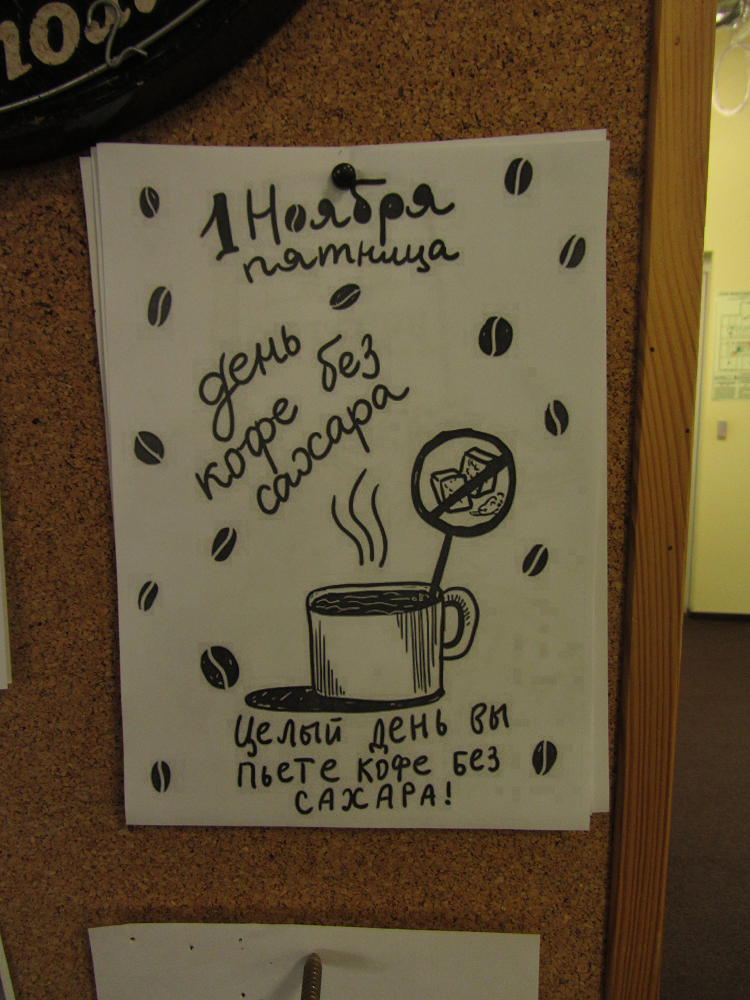 1 Ноября
пятница
день
кофе без
сахара
Целый день вы
пьете кофе без
САХАРА!